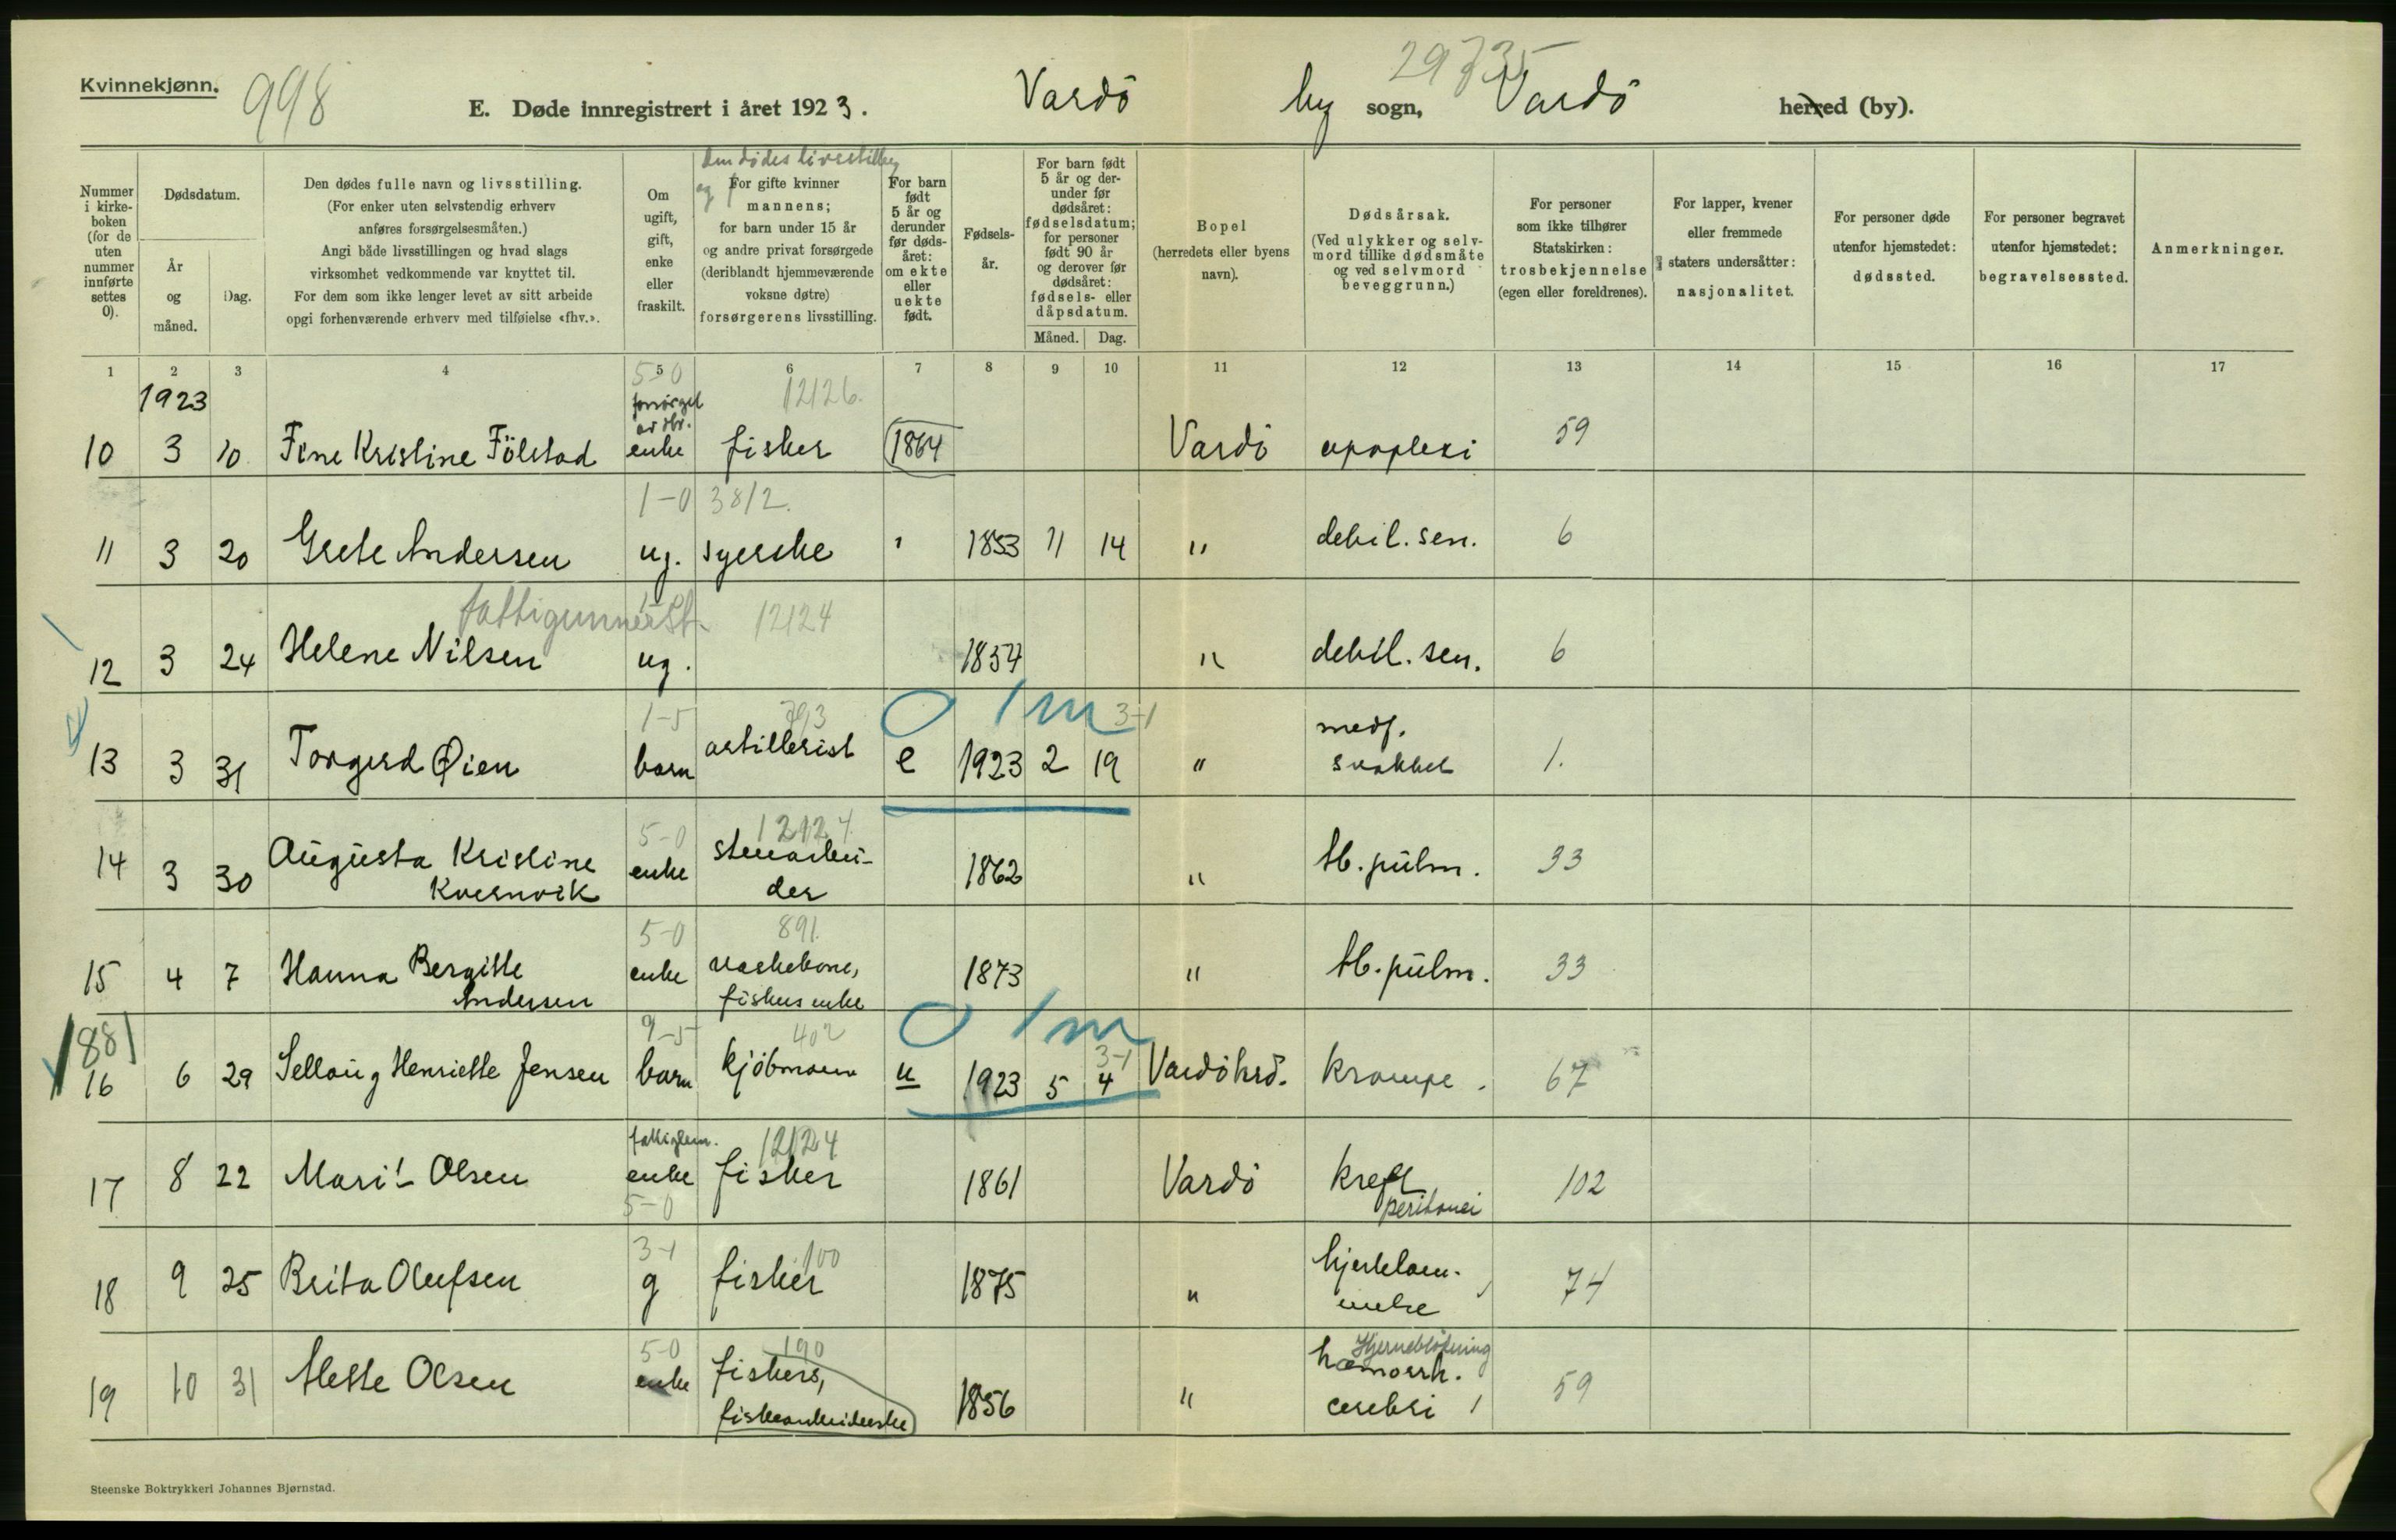 Kvinnekjønn.
998
29735
E. Døde innregistrert i året 1923. Vardö by sogn, Vardö herred (by).
Nummer i kirke- boken (for de uten nummer innførte settes 0).
Dødsdatum.
År og måned.
Dag.
Den dødes fulle navn og livsstilling.
(For enker uten selvstendig erhverv
anføres forsørgelsesmåten.)
Angi både livsstillingen og hvad slags
virksomhet vedkommende var knyttet til.
For dem som ikke lenger levet av sitt arbeide
opgi forhenværende erhverv med tilføielse «fhv.».
Om ugift, gift, enke eller fraskilt.
Den dödes livsstilling
og
For gifte kvinner
mannens;
for barn under 15 år
og andre privat forsørgede
(deriblandt hjemmeværende
voksne døtre)
forsørgerens livsstilling.
For barn født 5 år og derunder før døds- året: om ekte eller uekte født.
Fødsels- år.
For barn født 5 år og der- under før dødsåret: fødselsdatum; for personer født 90 år og derover før dødsåret: fødsels- eller dåpsdatum.
Måned. Dag.
Bopel
(herredets eller byens
navn).
Dødsårsak.
(Ved ulykker og selv-
mord tillike dødsmåte
og ved selvmord
beveggrunn.)
For personer
som ikke tilhører
Statskirken:
trosbekjennelse
(egen eller foreldrenes).
For lapper, kvener
eller fremmede
staters undersåtter:
nasjonalitet.
For personer døde
utenfor hjemstedet:
dødssted.
For personer begravet
utenfor hjemstedet:
begravelsessted.
Anmerkninger.
1 2 3 4 5 6 7 8 9 10 11 12 13 14 15 16 17
1923 5-0 12126.
forsörget
av
10 3 10 Fine Kristine Fölstad enke fisker 1864 Vardö apoplexi 59
1-0 3812.
11 3 20 Grete Andersen ug. syerske 1853 11 14 " debil. sen. 6
12124
12 3 24 Helene Nilsen ug. 1857 " debil. sen. 6
1-5 793 0 1m 3-1
13 3 31 Torgerd Øien barn artillerist e 1923 2 19 " medf. svakhet 1.
5-0 12124
14 3 30 Augusta Kristine Kvernvik enke stenarbeider 1862 " tb. pulm. 33
5-0 891.
15 4 7 Hanna Bergitte Andersen enke vaskekone, fiskers enke 1873 " tb. pulm. 33
881 9-5 402 0 1m 3-1
16 6 29 Sellaug Henriette Jensen barn kjöbmann u 1923 5 4 Vardö hrd. krampe. 67
fattiglem. 12124
17 8 22 Marit Olsen enke fisker 1861 Vardö kreft peritonei 102
5-0
3-1 100
18 9 25 Brita Olufsen g fisker 1875 " hjertelammelse 74
5-0 190 Hjerneblödning
19 10 31 Mette Olsen enke fiskers, fiskearbeiderske 1856 " hæmorrh. cerebri 59
Steenske Boktrykkeri Johannes Bjørnstad.